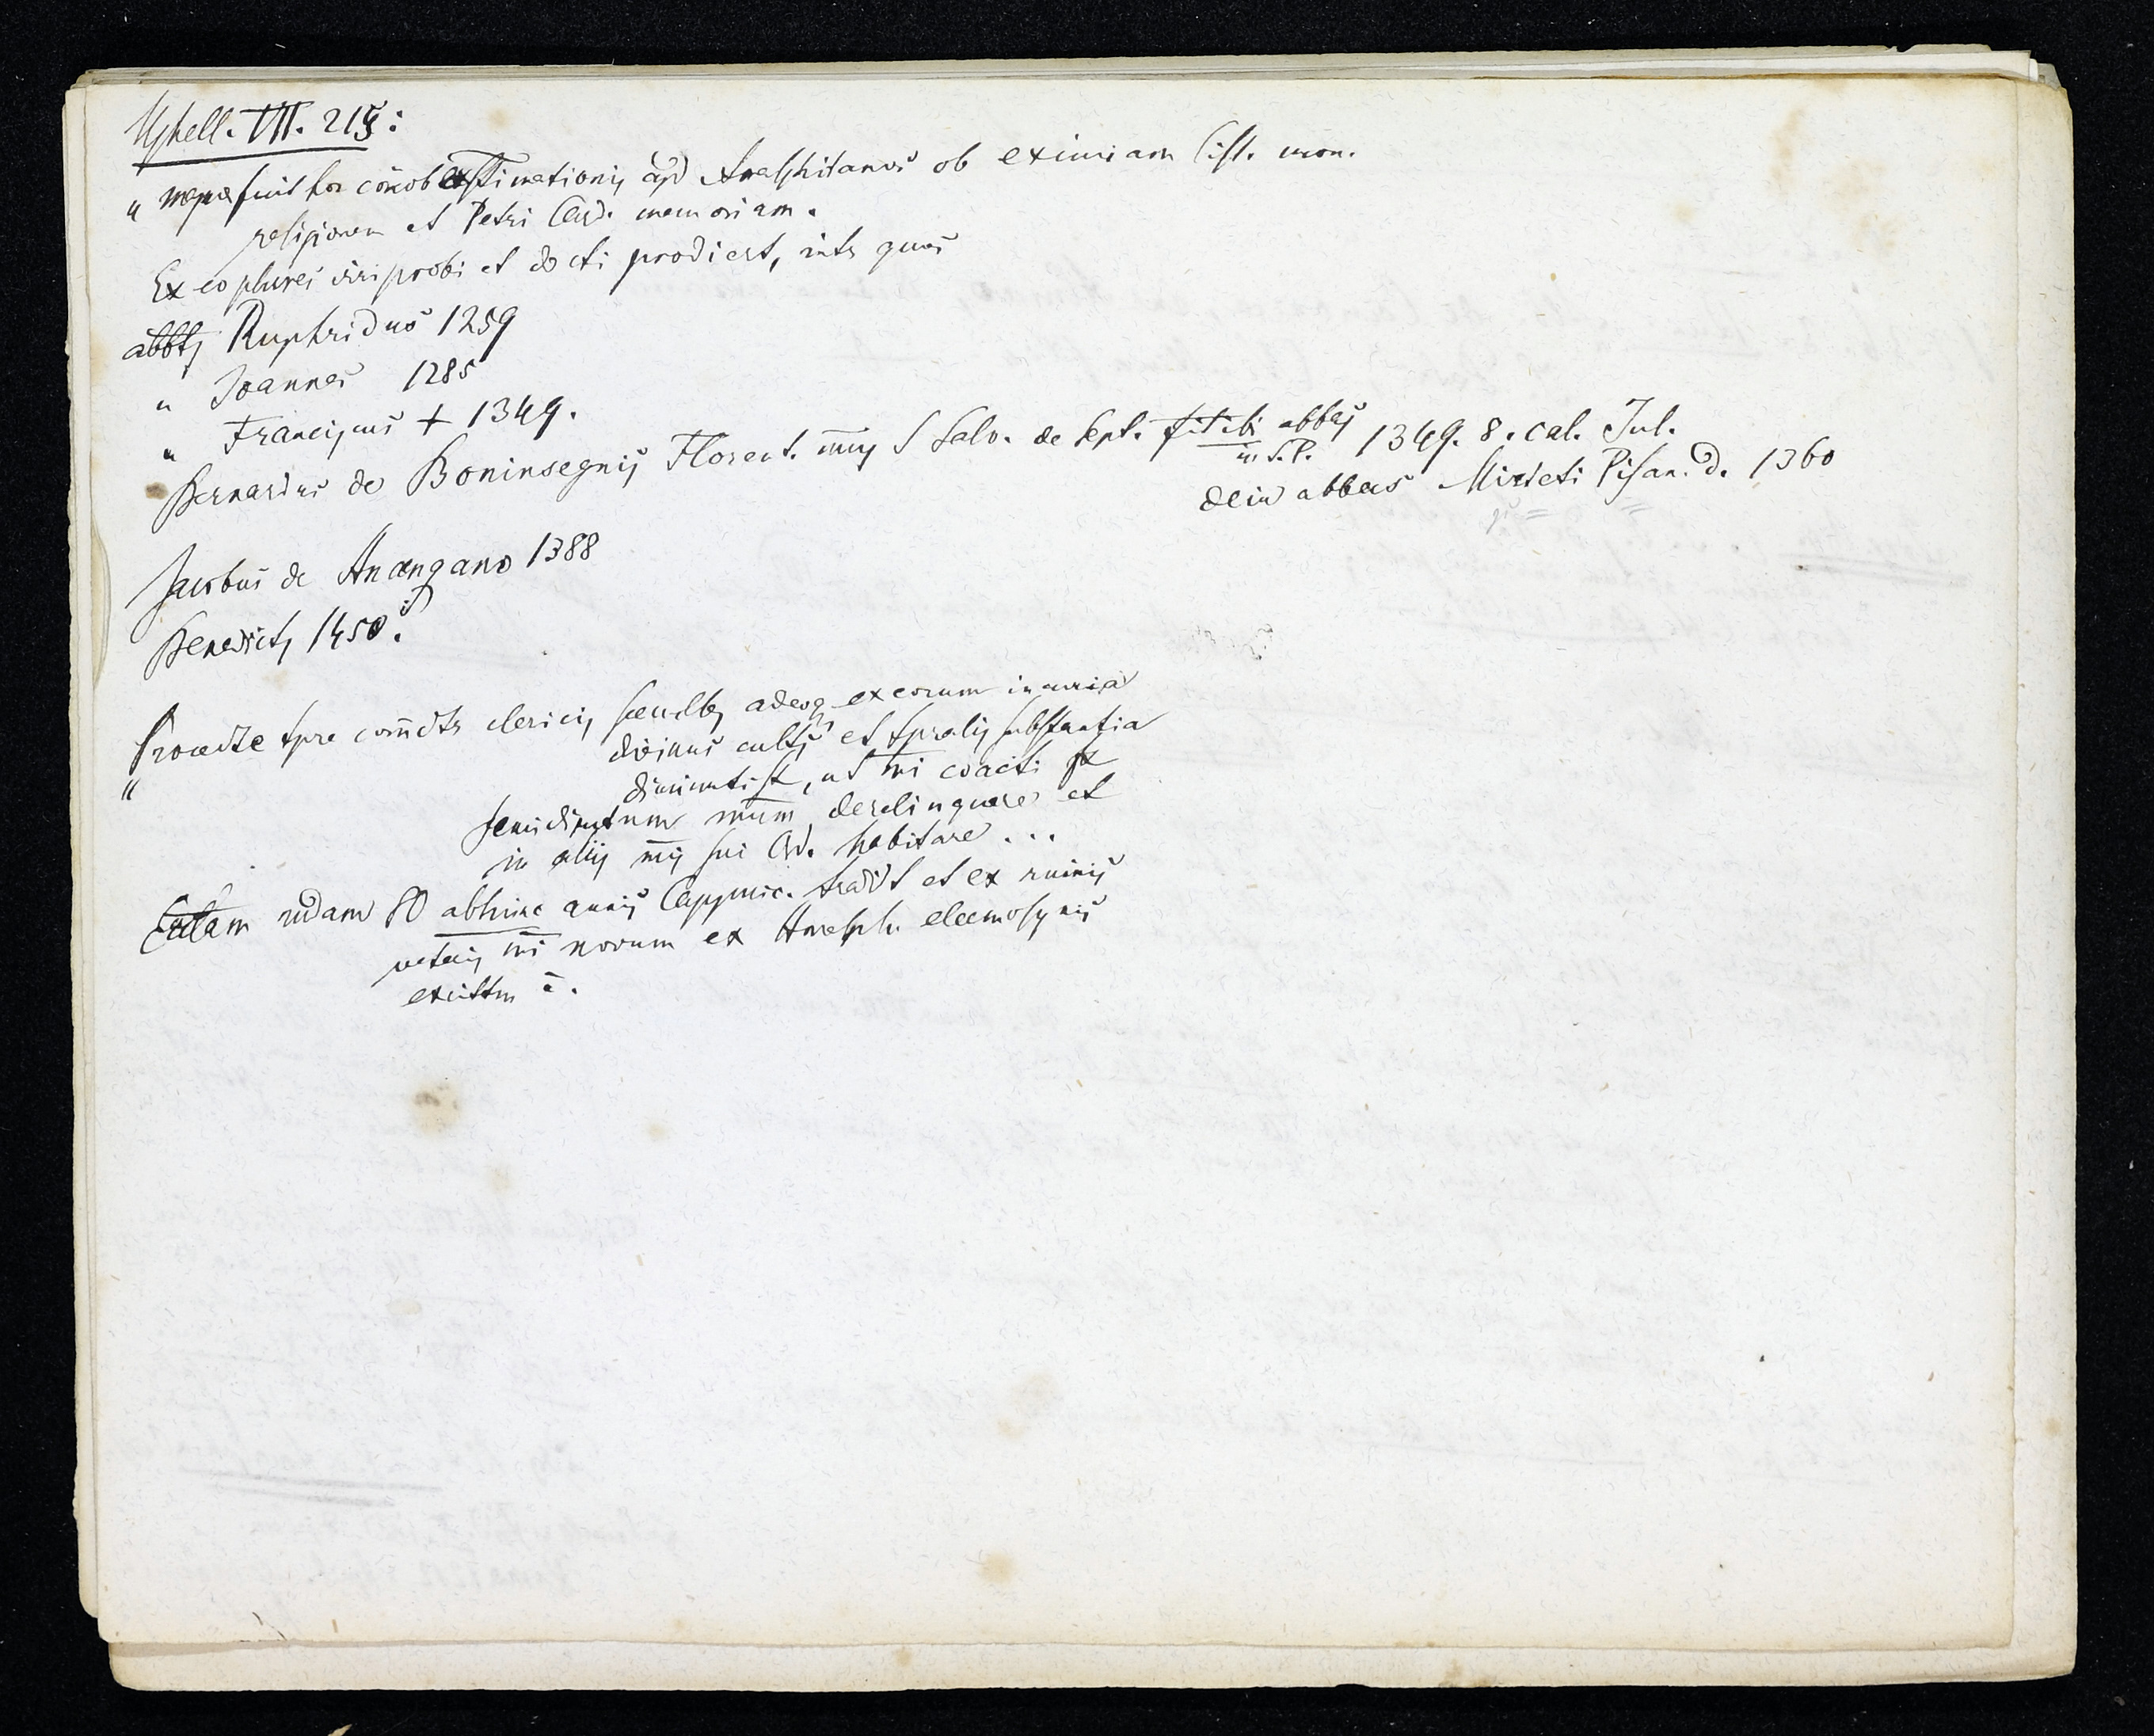 Ughell. VII. 215:
" magnæ fuit hoc cœnob. æstimationis apd Amalphitanos ob eximiam Cist. mon.
religionem et Petri Card. memoriam.
Ex eo plures viri probi et docti prodiert, intr quos
abbts Ruphridus 1259
" Joannes 1285
" Franciscus + 1349.
Bernardus de Boninsegnis Florent. mng S Salv. de Sept. fit ibi abbas 1349. 8. cal. Jul.
in S. P.
dein abbas Mirteti Pisan. d. 1360
Jacobus de Anangano 1388
Benedicts 1450."
" Procedte tpre comdtr clericis seculbs adeoq ex eorum incuria
divinus cults et tpralis substantia
diminuti st, ut mi coacti st
semidirutum mum derelinquere et
in aliis mis sui Ord. habitare ...
Ecclam nudam 80 abhinc annis Cappucc. tradit et ex ruinis
veteris mi novum ex Amalph. eleemosynis
excittm ē.